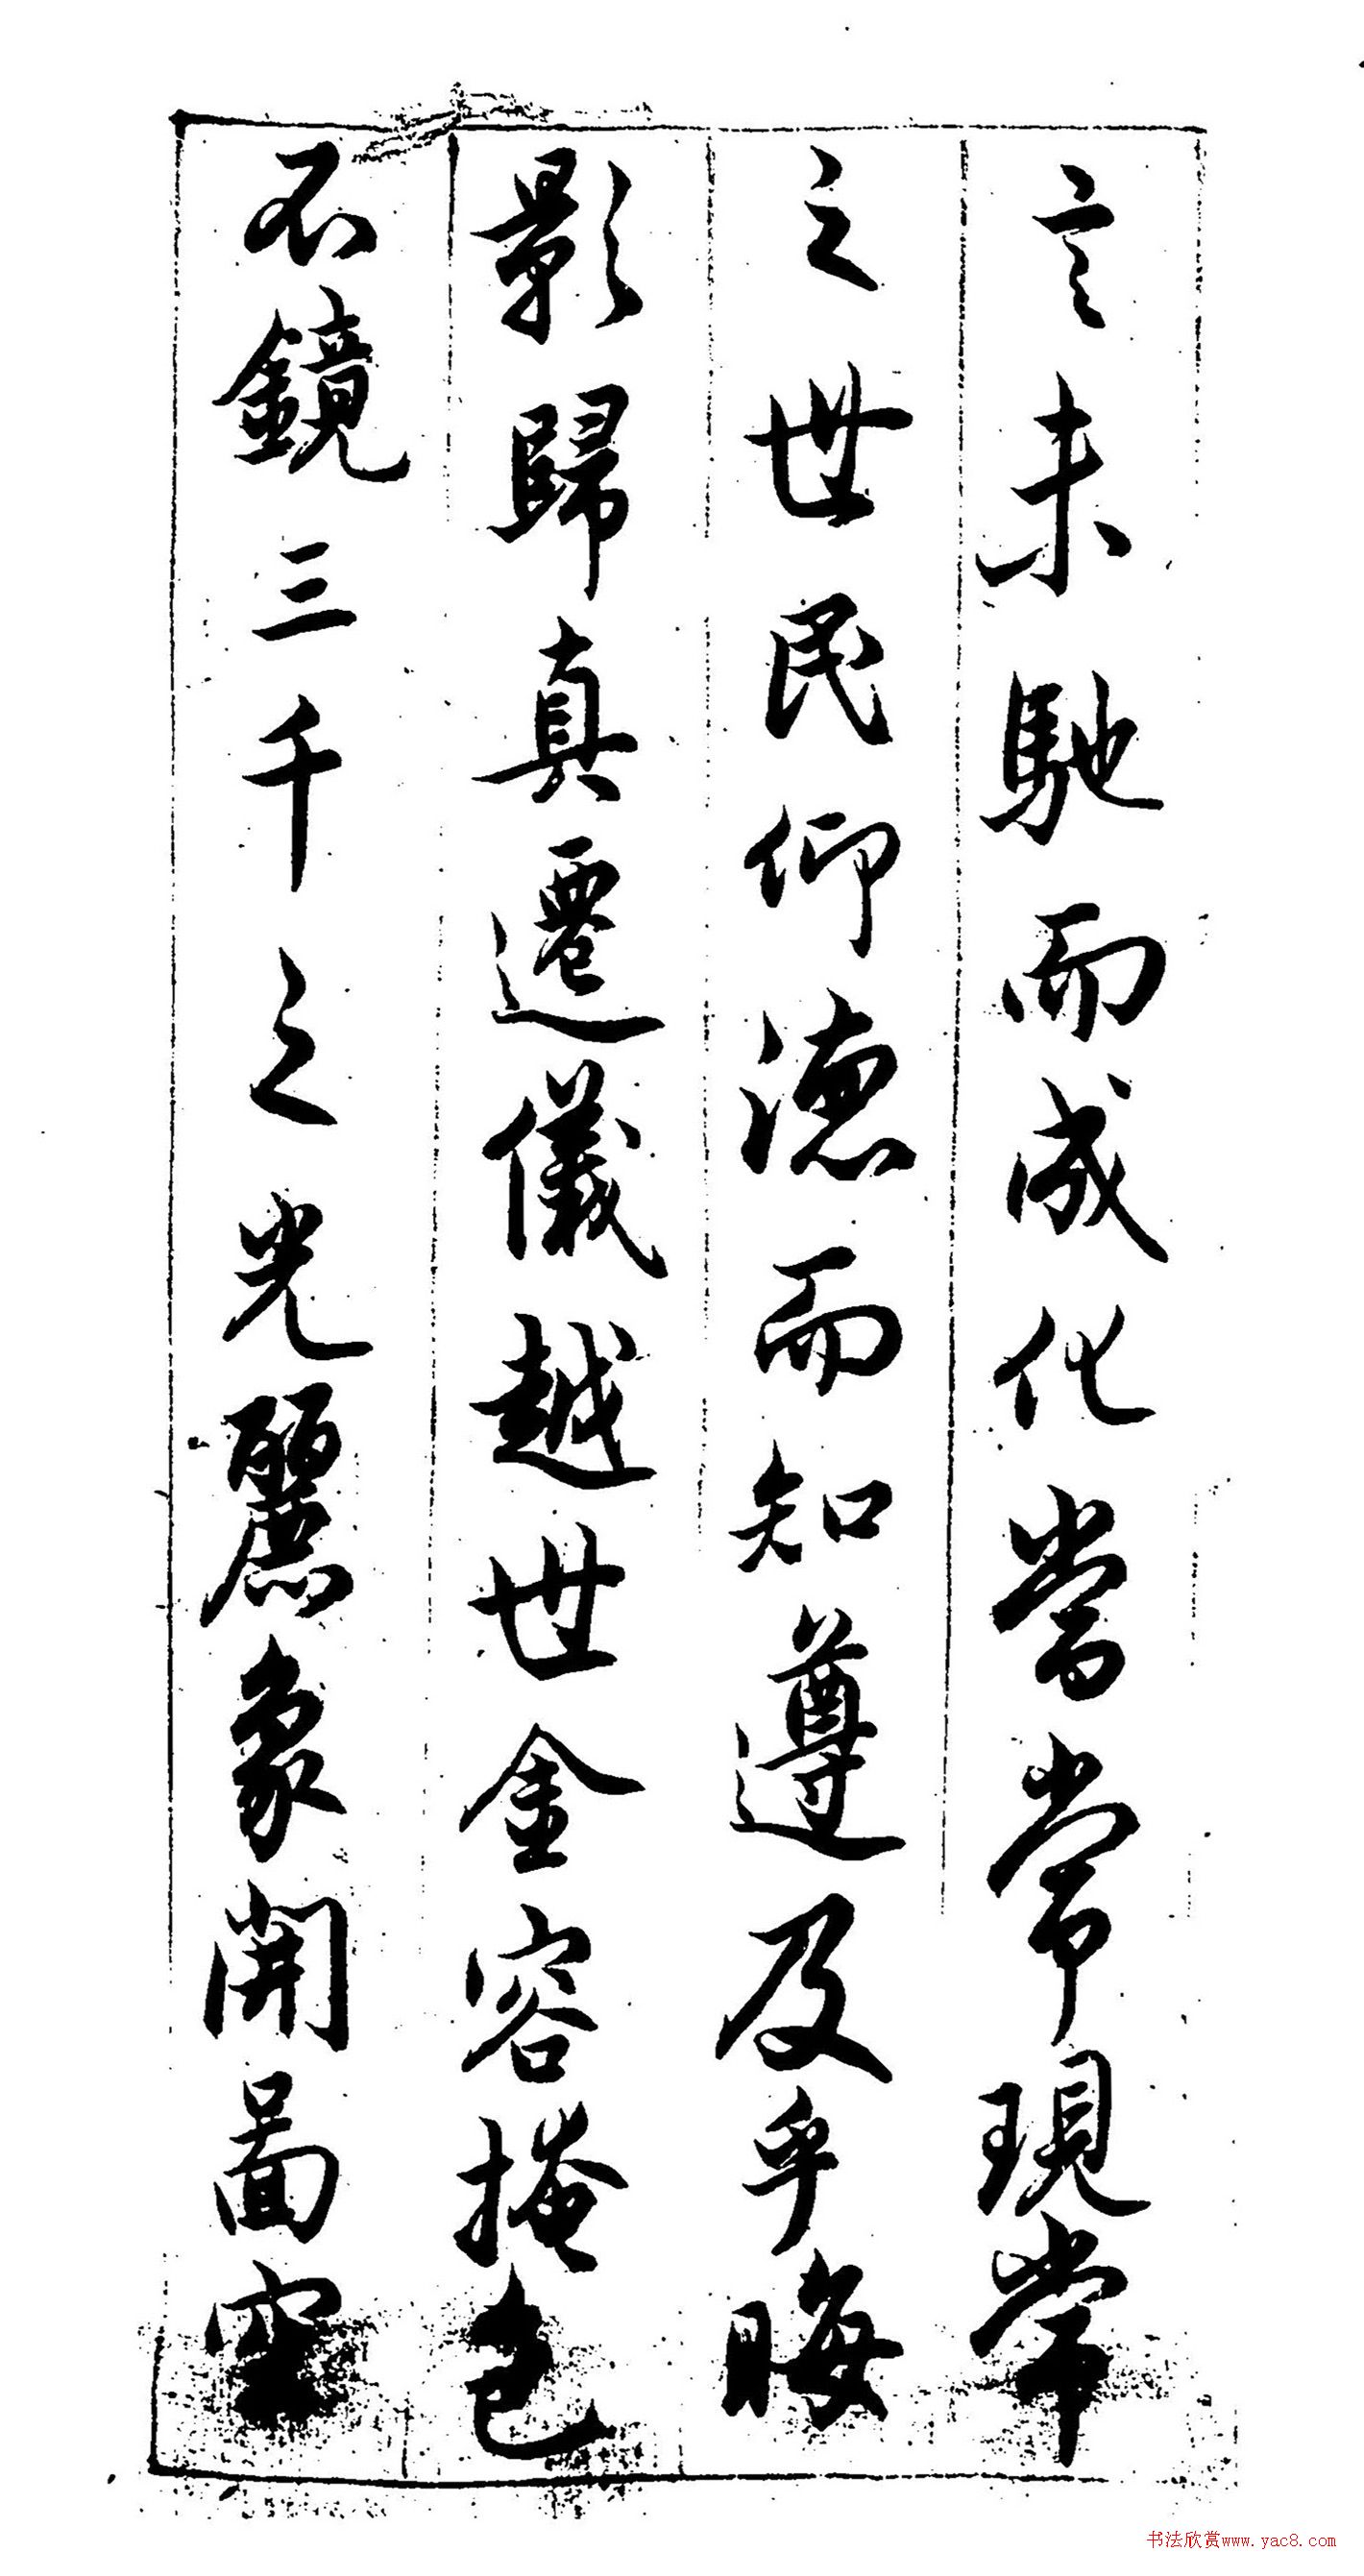 言未馳而成化當常現常
之世民仰德而知遵及乎晦
影歸真遷儀越世金容掩色
不鏡三千之光麗象開圖空
书法欣赏www.yac8.com